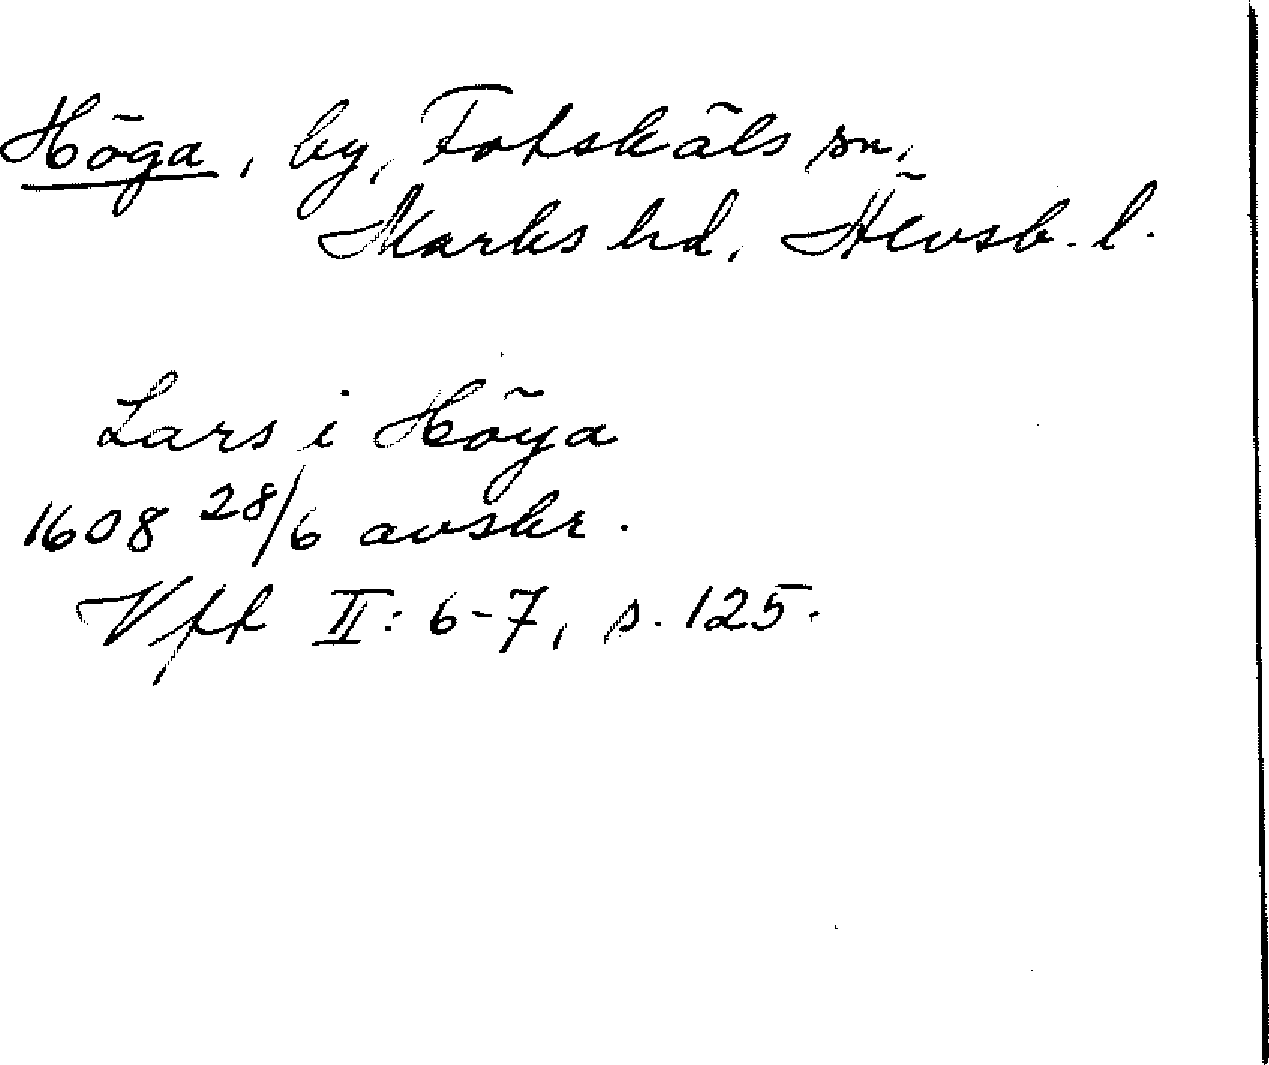 Höga, by, Fotskäls sn,
Marks hd, Älvsb. l.
Lars i Höya
1608 28/6 avskr.
Vft II: 6-7, s. 125.